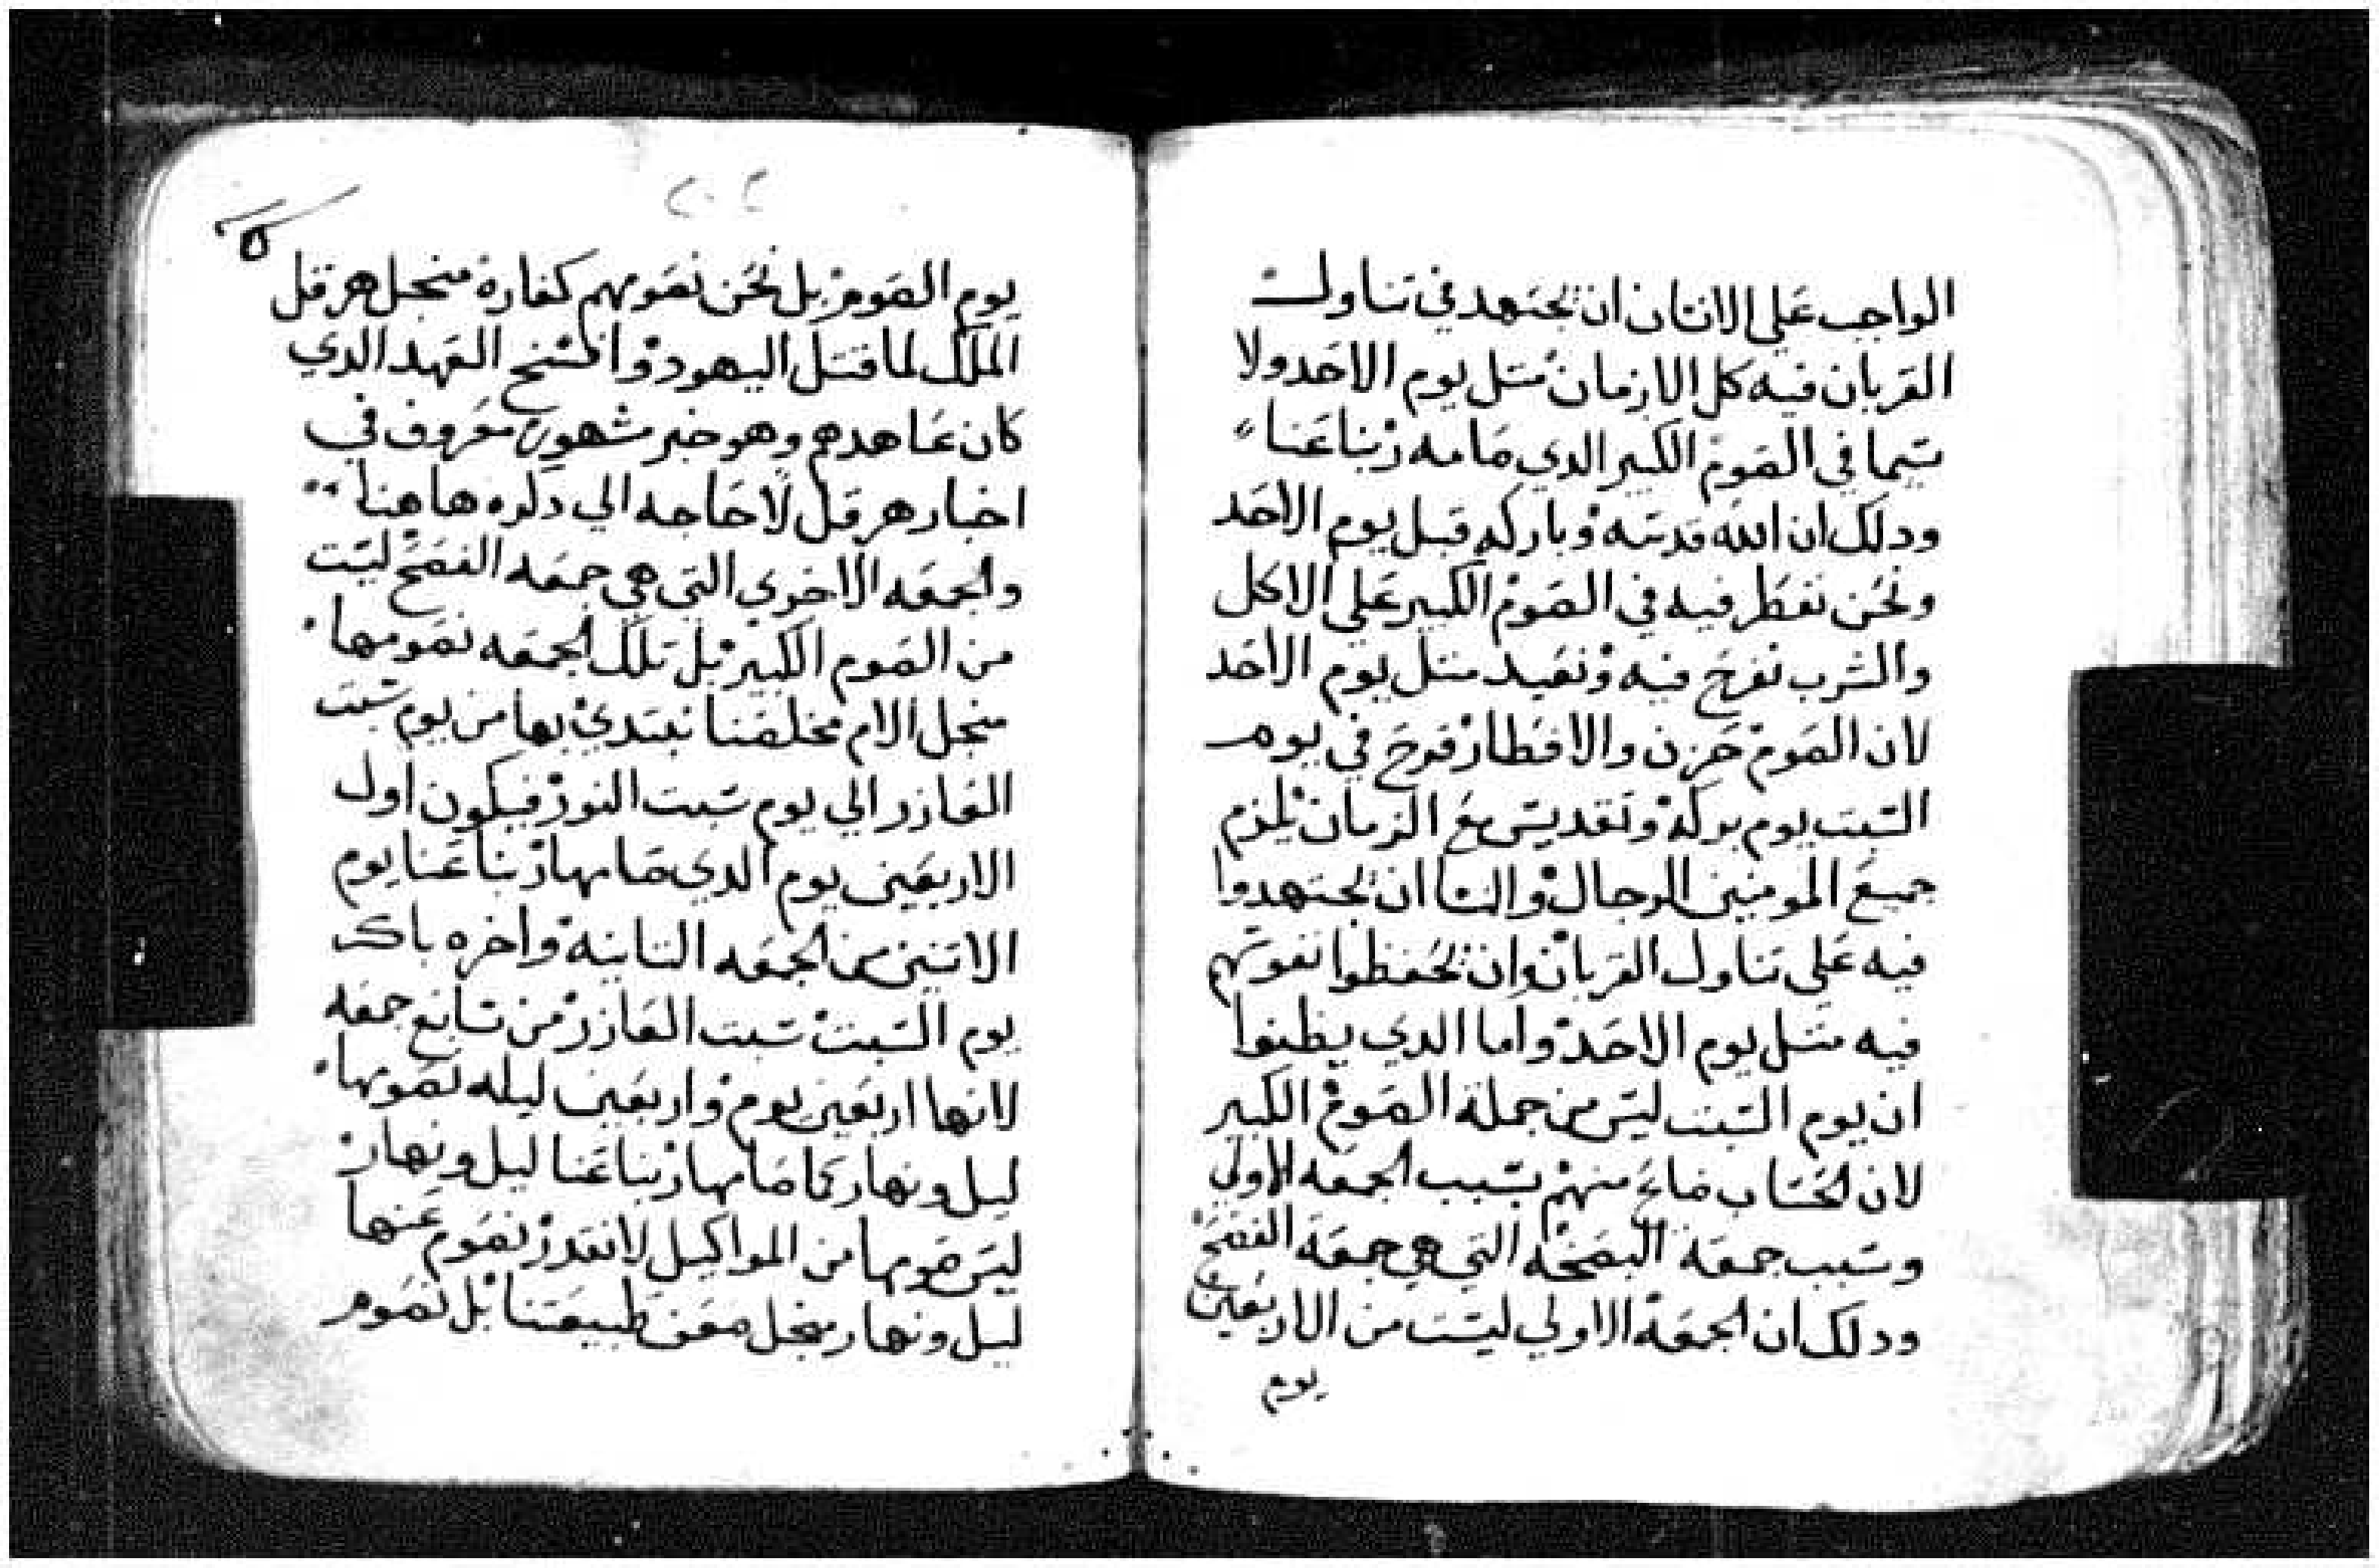 الواجب علي الانسان ان يجتهد في تناول
القربان فيه كل الازمان متل يوم الاحد ولا
سيما في الصوم الكبير الدي صامه ربنا عنا
ودلك ان الله قدسه وباركه قبل يوم الاحد
ونحن نفطر فيه في الصوم الكبير علي الاكل
والشرب نفرح فيه ونعيد متل يوم الاحد
لان الصوم حزن والافطار فرح في يوم
السبت يوم بركه وتقديس مع الزمان يلزم
جميع المومنين الرجال والنسا ان يجتهدوا
فيه علي تناول القربان وان يحفظوا نفوسهم
فيه متل يوم الاحد واما الدي يظنوا
ان يوم السبت ليس من جملة الصوم الكبير
لان الحساب ضايع منهم بسبب الجمعه الاولي
وسبب جمعة البصخه التي هي جمعة الفصح
ودلك ان الجمعة الاولي ليست من الاربعين
يوم
٢٠٢
يوم الصوم بل نحن نصومهم كفارة منجل هرقل
الملك لما قتل اليهود وافسخ العهد الدي
كان عاهدهم وهو خبر مشهور معروف في
اخبار هرقل لا حاجه الي دكره هاهنا
والجمعه الاخري التي هي جمعه الفصح ليست
من الصوم الكبير بل تلك الجمعه نصومها
منجل الام مخلصنا نبتدي بها من يوم سبت
العازر الي يوم سبت النور فيكون اول
الاربعين يوم الدي صامها ربنا عنا يوم
الاتنين من الجمعه التانيه واخره باكر
يوم السبت سبت العازر من سابع جمعه
لانها اربعين يوم واربعين ليله نصومها
ليل ونهار كما صامها ربنا عنا ليل ونهار
ليس صومها من المواكيل لا نقدر نصوم عنها
ليل ونهار منجل ضعف طبيعتنا بل نصوم